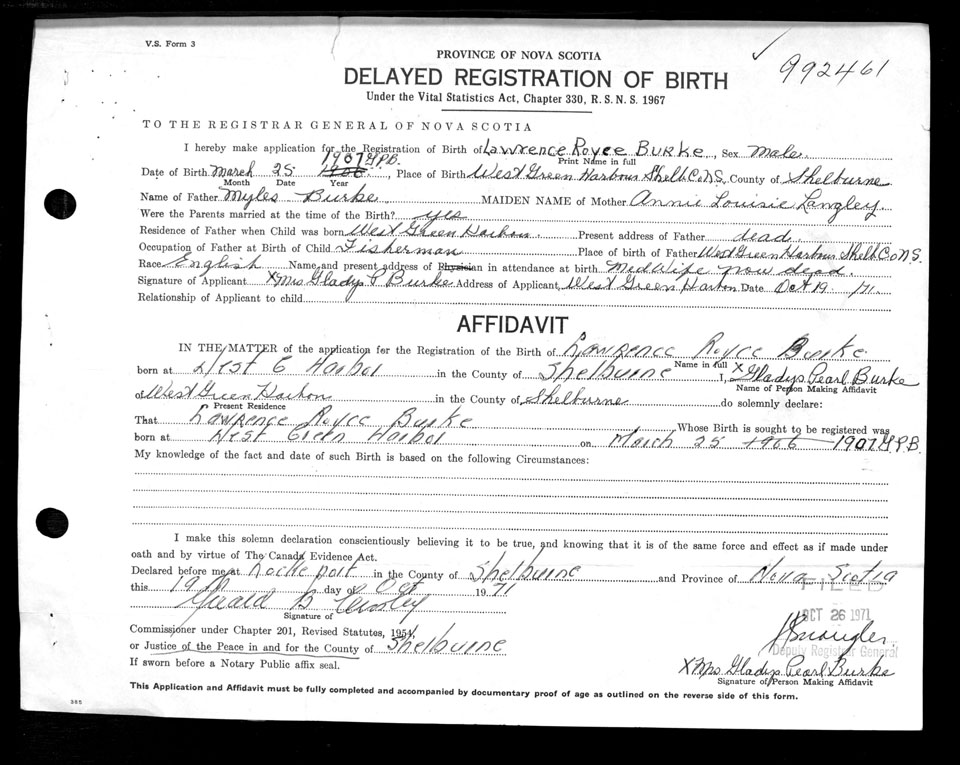 V.S. Form 3
992461
PROVINCE OF NOVA SCOTIA
DELAYED REGISTRATION OF BIRTH
Under the Vital Statistics Act, Chapter 330, R.S.N.S. 1967
TO THE REGISTRAR GENERAL OF NOVA SCOTIA
I hereby make application for the Registration of Birth of Lawrence Royce Burke, Sex Male
Print Name in full
1907 G.P.B.
Date of Birth March 25 1906, Place of Birth West Green Harbour Shelb. Co N.S. County of Shelburne
Month Date Year
Name of Father Myles Burke MAIDEN NAME of Mother Annie Louisie Langley
Were the Parents married at the time of the Birth? yes
Residence of Father when Child was born West Green Harbor Present address of Father dead
Occupation of Father at Birth of Child Fisherman Place of birth of Father West Green Harbour Shelb. Co N.S.
Race English Name and present address of Physician in attendance at birth Midwife now dead
Signature of Applicant X Mrs Gladys P Burke Address of Applicant West Green Harbor Date Oct 19 /71
Relationship of Applicant to child
AFFIDAVIT
IN THE MATTER of the application for the Registration of the Birth of Lawrence Royce Burke
Name in full
born at West G Harbor in the County of Shelburne I, X Gladys Pearl Burke
Name of Person Making Affidavit
of West Green Harbor in the County of Shelburne do solemnly declare:
Present Residence
That Lawrence Royce Burke Whose Birth is sought to be registered was
born at West Green Harbor on March 25 1906 1907 G.P.B.
My knowledge of the fact and date of such Birth is based on the following Circumstances:
I make this solemn declaration conscientiously believing it to be true, and knowing that it is of the same force and effect as if made under
oath and by virtue of The Canada Evidence Act.
Declared before me at Lockeport in the County of Shelburne and Province of Nova Scotia
this 19th day of Oct 1971
FILED
OCT 26 1971
Signature of
Deputy Registrar General
Commissioner under Chapter 201, Revised Statutes, 1954,
or Justice of the Peace in and for the County of Shelburne
If sworn before a Notary Public affix seal.
X Mrs Gladys Pearl Burke
Signature of Person Making Affidavit
This Application and Affidavit must be fully completed and accompanied by documentary proof of age as outlined on the reverse side of this form.
385